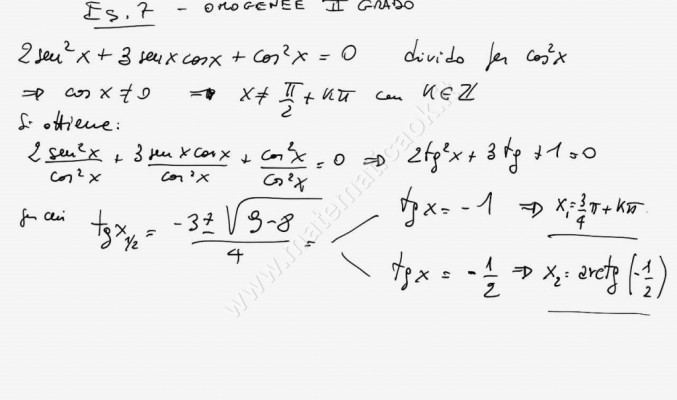 Es. 7 - OMOGENEE II GRADO
2 sen²x + 3 senx cosx + cos²x = 0 divido per cos²x
⇒ cos x ≠ 0 ⇒ x ≠ π/2 + kπ con k ∈ ℤ
Si ottiene:
2 sen²x/cos²x + 3 sen x cos x/cos²x + cos²x/cos²x = 0 ⇒ 2tg²x + 3tg + 1 = 0
per cui tg x 1/2 = (-3 ± √(9-8))/4 =
tg x = -1 ⇒ x₁ = 3/4 π + kπ
tg x = -1/2 ⇒ x₂ = arctg(-1/2)